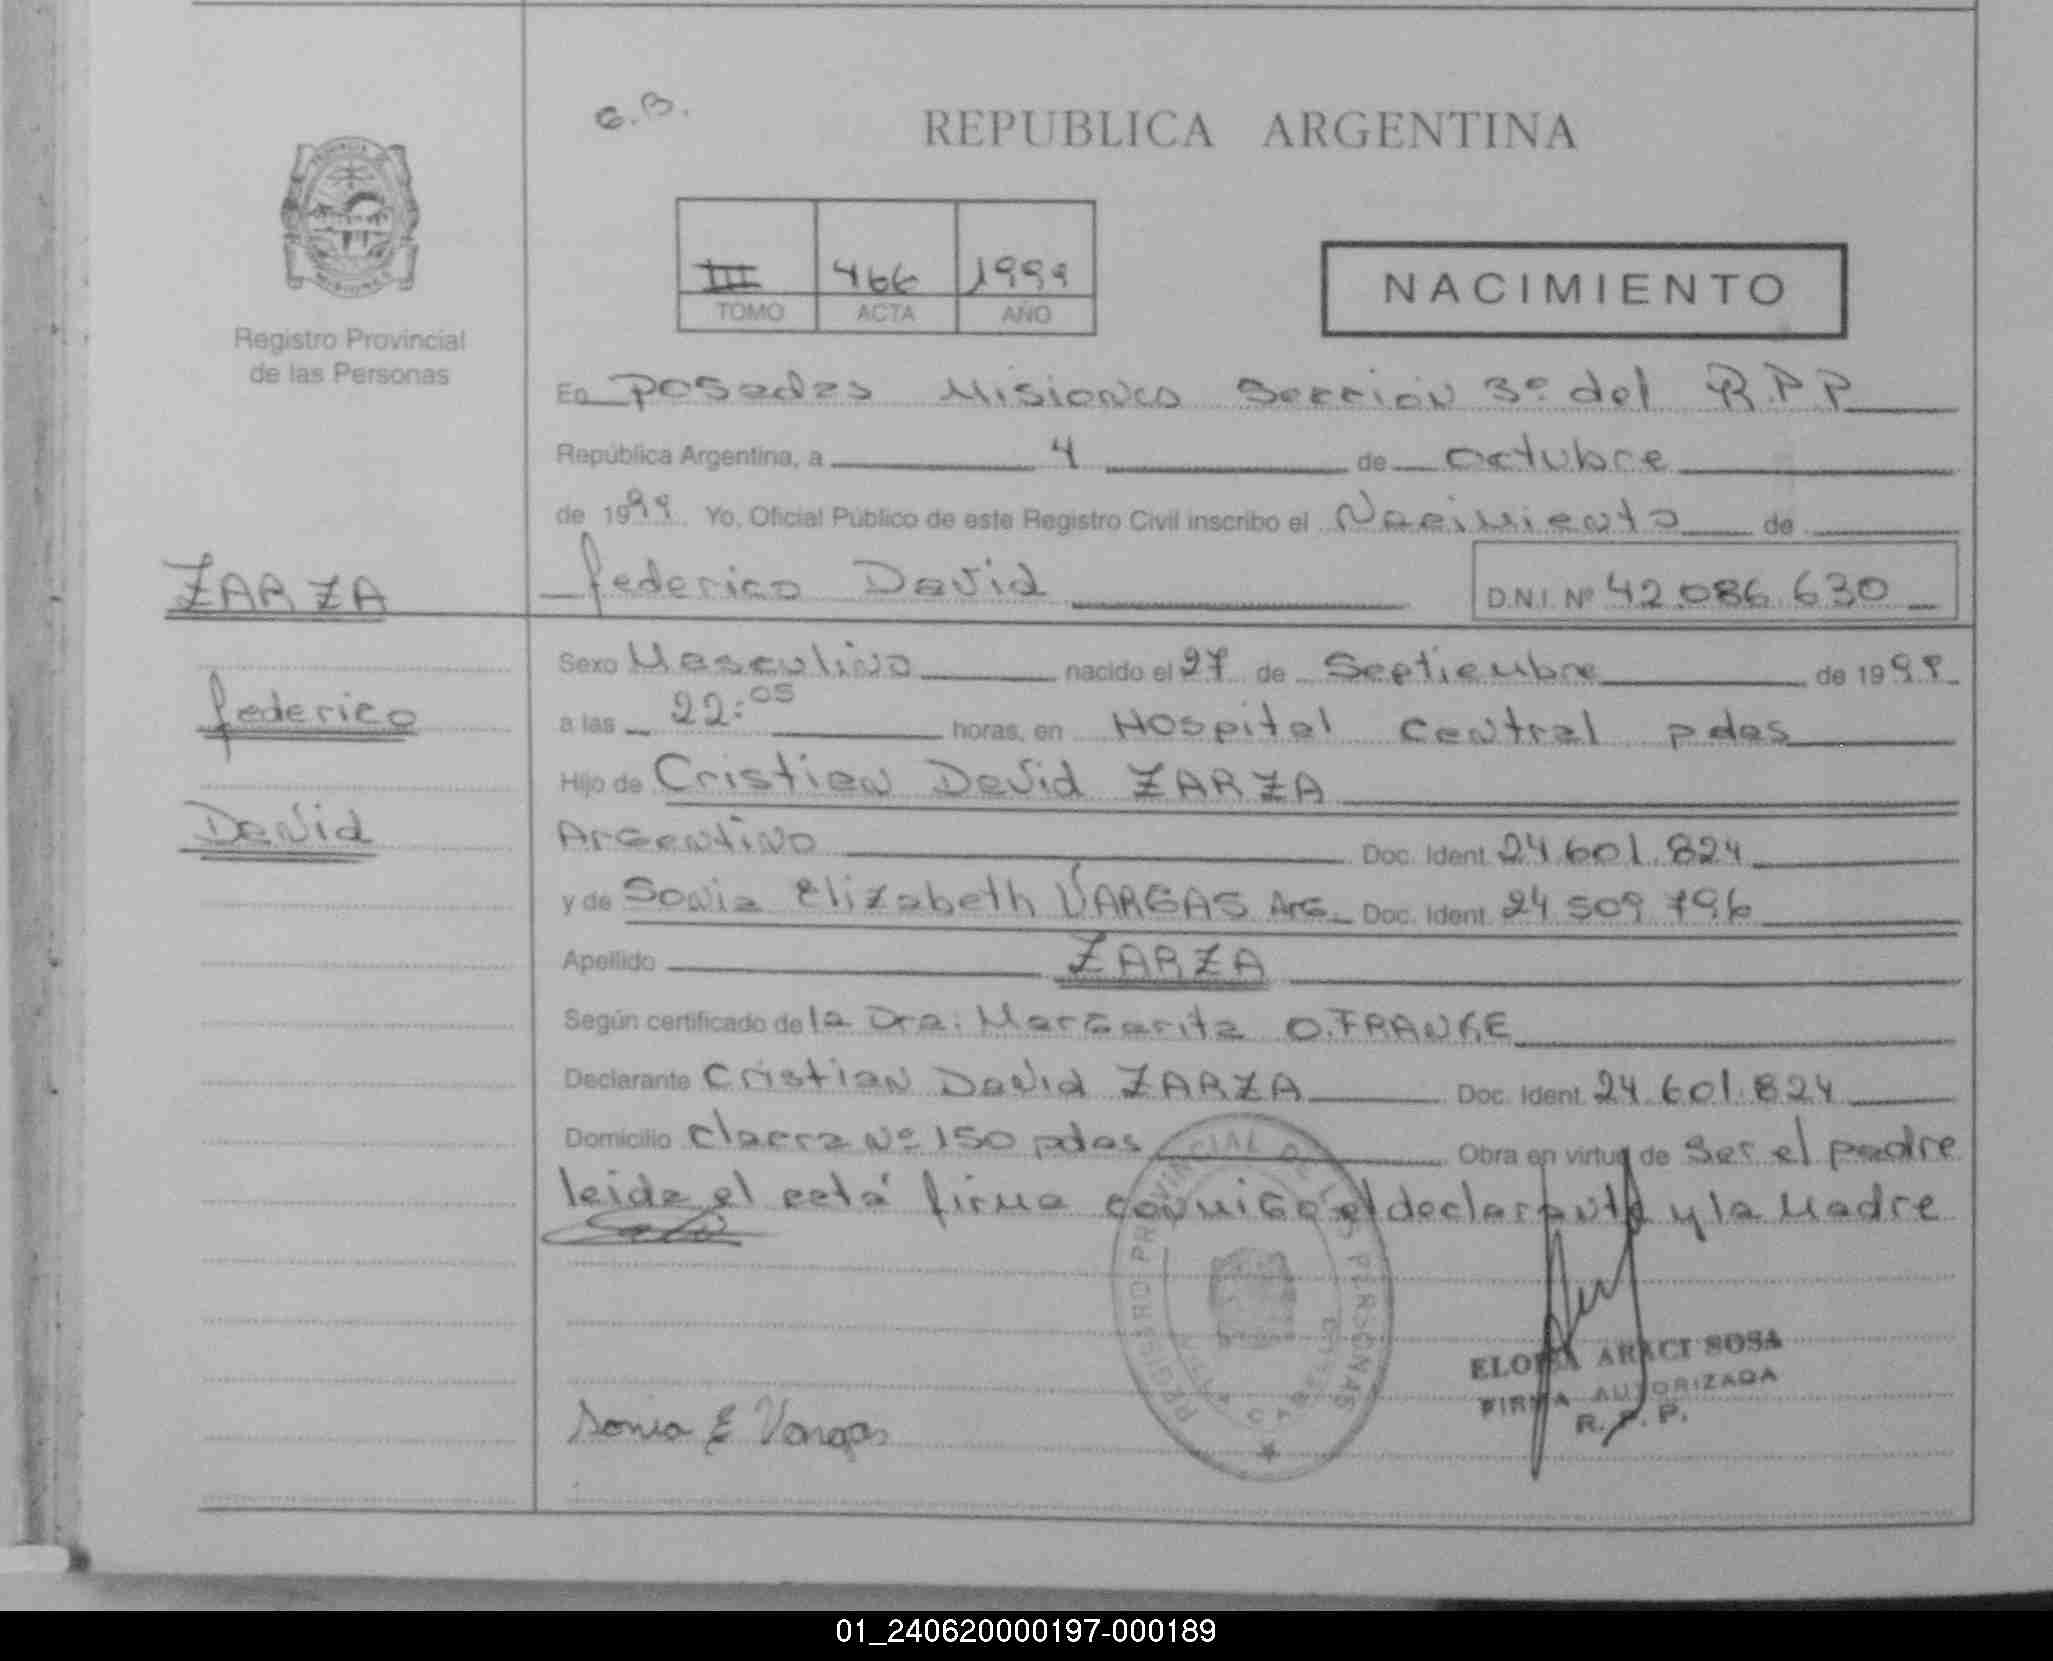 G.B.
REPUBLICA ARGENTINA
III 466 1999
TOMO ACTA AÑO
NACIMIENTO
Registro Provincial
de las Personas
En Posadas Misiones Sección 3º del R.P.P
República Argentina, a 4 de octubre
de 1999. Yo, Oficial Público de este Registro Civil inscribo el Nacimiento de
ZARZA
Federico David D.N.I. Nº 42.086.630
Sexo Masculino nacido el 27 de Septiembre de 1999
Federico
a las 22:05 horas, en Hospital Central pdas
Hijo de Cristian David ZARZA
David
Argentino Doc. Ident. 24.601.824
y de Sonia Elizabeth VARGAS Arg. Doc. Ident. 24.509.796
Apellido ZARZA
Según certificado de la Dra: Margarita O.FRANKE
Declarante Cristian David ZARZA Doc. Ident. 24.601.824
Domicilio Chacra Nº 150 pdas Obra en virtud de Ser el padre
leida el acta firma conmigo el declarante y la Madre
REGISTRO PROVINCIAL DE LAS PERSONAS
ELOISA ARACI SOSA
FIRMA AUTORIZADA
R. P. P.
Sonia E Vargas
01_240620000197-000189